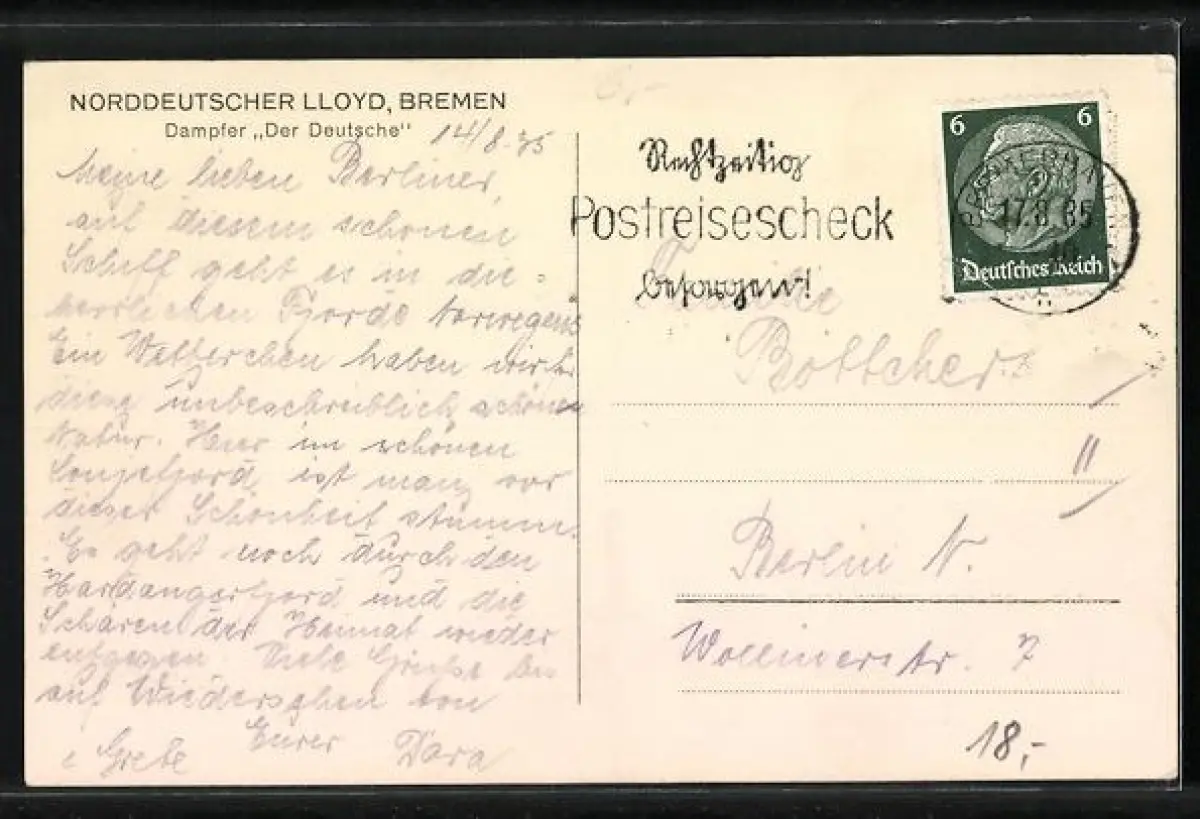 NORDDEUTSCHER LLOYD, BREMEN
Dampfer „Der Deutsche“
14/8.35
Meine lieben Berliner,
auf diesem schönen
Schiff geht es in die
herrlichen Fjorde Norwegens
Ein Wetterchen haben wir
diese unbeschreiblich schönen
Natur. Hier im schönen
Songefjord ist man vor
dieser Schönheit stumm.
Es geht noch durch den
Hardangerfjord und die
Schären der Heimat wieder
entgegen. Viele Grüße bis
auf Wiedersehen von
Eurer Dora
Grete
Rechtzeitig
Postreisescheck
besorgen!
6 6
Deutsches Reich
BREMERHAVEN
17.8.35
Familie
Böttcher
Berlin N.
Wollinerstr. 7
18,-